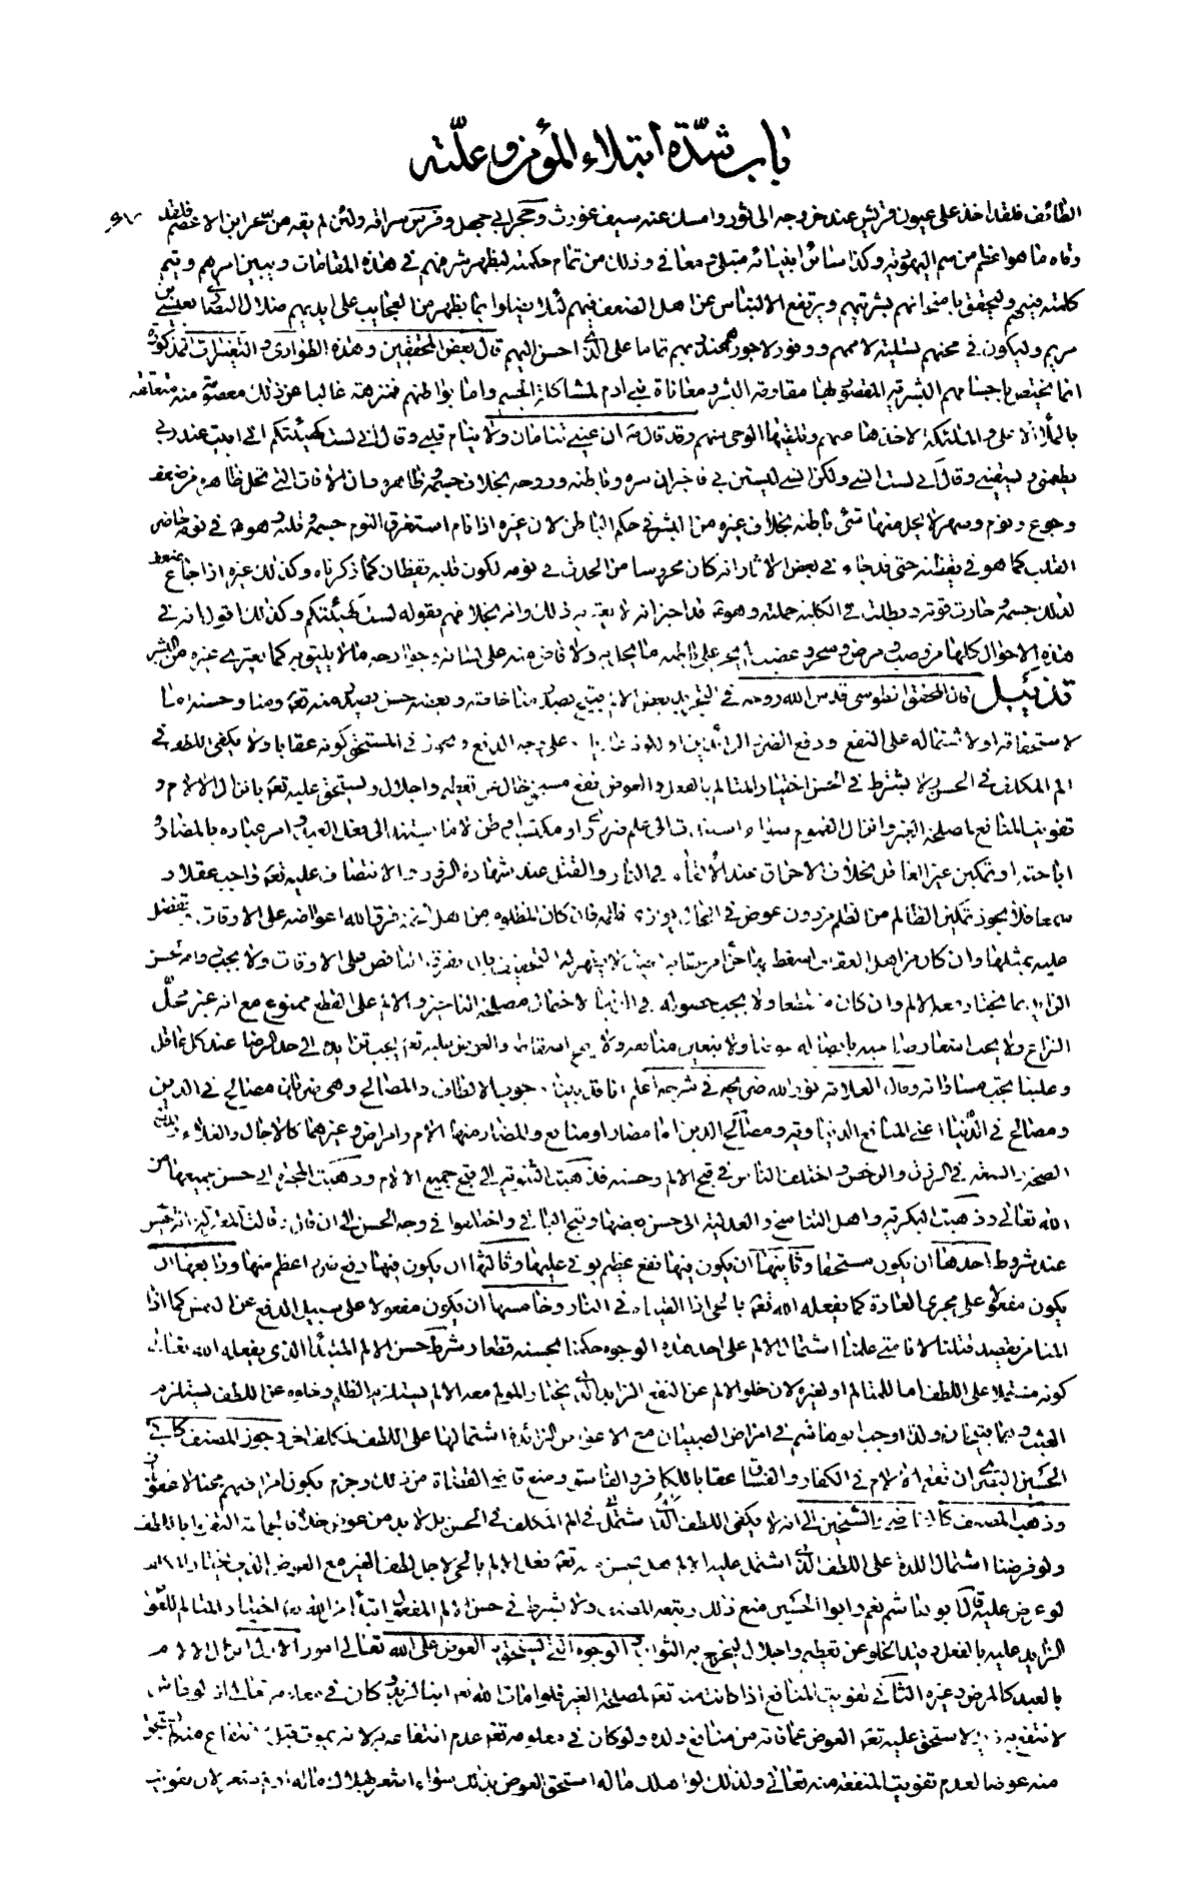 باب شدّة ابتلاء المؤمن و علّته
الطائف فلقد اخذ على عيون قريش عند خروجه الى ثور وامسك عنه سيف غورث و حجر ابي جهل و فرس سراقه ولئن لم يقه من سحر ابن الاعصم فلقد
وقاه ما هو اعظم من سم اليهودية وكذا سائر انبيائه مبتلى و معافى وذلك من تمام حكمته ليظهر شرفهم في هذه المقامات و يبين امرهم و يتم
كلمته فيهم وليحقق بامتحانهم بشريتهم و يرتفع الالتباس عن اهل الضعف فيهم لئلا يضلوا بما يظهر من العجايب على ايديهم ضلال النصارى بعيسى بن
مريم وليكون في محنهم تسلية لاممهم و وفور لاجورهم عند ربهم تماما على الذي احسن اليهم قال بعض المحققين و هذه الطواري و التغيرات المذكورة
انما يختص باجسامهم البشرية المقصود بها مقاومة البشر و معاناة بني ادم لمشاكلة الجسم واما بواطنهم فمنزهة غالبا عن ذلك معصومة منه متعلقة
بالملأ الاعلى و الملئكة لاخذها عنهم و تلقيها الوحي منهم وقد قال ان عيني تنامان ولا ينام قلبي و قال اني لست كهيئتكم اني ابيت عند ربي
يطعمني و يسقيني و قال اني لست انسى ولكن انسى ليستن بي فاخبر ان سره و باطنه و روحه بخلاف جسمه و ظاهره و ان الافات التي تحل ظاهره من ضعف
و جوع و نوم و سهر لا يحل منها شئ باطنه بخلاف غيره من البشر في حكم الباطن لان غيره اذا نام استغرق النوم جسمه و قلبه و هو في نومه حاضر
القلب كما هو في يقظته حتى قد جاء في بعض الاثار انه كان محروسا من الحدث في نومه لكون قلبه يقظان كما ذكرناه وكذلك غيره اذا جاع ضعف
لذلك جسمه و خارت قوته و بطلت في الكلية جملته و هو قد اخبر انه لا يعتريه ذلك وانه بخلافهم بقوله لست كهيئتكم وكذلك اقول انه في
هذه الاحوال كلها من وصب و مرض و سحر و غضب لم يجر على باطنه ما يخل به ولا فاض منه على لسانه و جوارحه ما لا يليق به كما يعتري غيره من البشر
تذنيل قال المحقق الطوسي قدس الله روحه في التجريد بعض الالم قبيح يصدر منا خاصة و بعضه حسن يصدر منه تعه و منا و حسنه اما
لاستحقاقه او لاشتماله على النفع و دفع الضرر الزائدين او لكونه عاديا او على وجه الدفع و يجوز في المستحق كونه عقابا ولا يكفي اللطف في
الم المكلف في الحسن ولا يشترط في الحسن اختيار المتالم بالفعل و العوض نفع مستحق خال عن تعظيم و اجلال و يستحق عليه تعه بانزال الالام و
تفويت المنافع لمصلحة الغير و انزال الغموم سواء استندت الى علم ضروري او مكتسب او ظن لا ما يستند الى فعل العبد و امر عباده بالمضار و
اباحته او تمكين غير العاقل بخلاف الاحراق عند الالقاء في النار و القتل عند شهادة الزور و الانتصاف عليه تعه واجب عقلا و
سمعا فلا يجوز تمكين الظالم من الظلم من دون عوض في الحال يوازي ظلمه فان كان المظلوم من اهل الجنة فرق الله اعواضه على الاوقات او تفضل
عليه بمثلها وان كان من اهل العقاب اسقط بها جزءا من عقابه بحيث لا يظهر له التخفيف بان يفرق الناقص على الاوقات ولا يجب دوامه لحسن
الزائد بما يختار معه الالم وان كان منقطعا ولا يجب حصوله في الدنيا لاحتمال مصلحة التاخير و الالم على القطع ممنوع مع انه غير محل
النزاع ولا يجب اشعار صاحبه بايصاله عوضا ولا يتعين منافعه ولا يصح اسقاطه و العوض عليه تعه يجب تزايده الى حد الرضا عند كل عاقل
و علينا يجب مساواته و قال العلامة نور الله ضريحه في شرحه اعلم انا قد بينا وجوب الالطاف و المصالح و هي ضربان مصالح في الدين
و مصالح في الدنيا اعني المنافع الدنياوية و مصالح الدين اما مضار او منافع و المضار منها الالام و امراض و غيرهما كالاجال و الغلاء
الصحة و السعة في الرزق و الرخص و اختلف الناس في قبح الالم و حسنه فذهبت الثنوية الى قبح جميع الالام و ذهبت المجبرة الى حسن جميعها من
الله تعالى و ذهبت البكرية و اهل التناسخ و العدلية الى حسن بعضها و قبح الباقي و اختلفوا في وجه الحسن الى ان قال و قالت المعتزلة انه يحسن
عند شروط احدها ان يكون مستحقا و ثانيها ان يكون فيها نفع عظيم يوفي عليها و ثالثها ان يكون فيها دفع ضرر اعظم منها و رابعها ان
يكون مفعولا على مجرى العادة كما يفعله الله تعه بالحي اذا القيناه في النار و خامسها ان يكون مفعولا على سبيل الدفع عن النفس كما اذا
المنا من يقصد قتلنا لانا متى علمنا اشتمال الالم على احد هذه الوجوه حكمنا بحسنه قطعا و شرط حسن الالم المبتدأ الذي يفعله الله تعالى
كونه مشتملا على اللطف اما للمتالم او لغيره لان خلو الالم عن النفع الزايد الذي يختار المولم معه الالم يستلزم الظلم و خلوه عن اللطف يستلزم
العبث و هما قبيحان ولذا اوجب ابو هاشم في امراض الصبيان مع الاعواض الزائدة اشتمالها على اللطف لمكلف اخر و جوز المصنف كابي
الحسين البصري ان تقع الالام في الكفار و الفساق عقابا للكافر و الفاسق و منع قاضي القضاة من ذلك و جزم بكون امراضهم محنا لا عقوبات
و ذهب المصنف كالقاضي و الشيخين الى انه لا يكفي اللطف في الم المكلف في الحسن بل لا بد من عوض خلافا لجماعة اكتفوا باللطف
ولو فرضنا اشتمال اللذة على اللطف الذي اشتمل عليه الالم هل يحسن منه تعه فعل الالم بالحي لاجل لطف الغير مع العوض الذي يختار الالم
لو عرض عليه قال ابو هاشم نعم و ابو الحسين منع ذلك و تبعه المصنف ولا يشترط في حسن الالم المفعول ابتداء من الله تعه اختيار المتالم للعوض
الزايد عليه بالفعل و قيد الخلو عن تعظيم و اجلال ليخرج به الثواب و الوجوه التي يستحق به العوض على الله تعالى امور الاول انزال الالام
بالعبد كالمرض و غيره الثاني تفويت المنافع اذا كانت منه تعه لمصلحة الغير فلو امات الله تعه ابنا لزيد و كان في معلومه تعالى انه لو عاش
لانتفع به زيد لاستحق عليه تعه العوض عما فاته من منافع ولده ولو كان في معلومه تعه عدم انتفاعه به لانه يموت قبل الانتفاع منه لم يستحق
منه عوضا لعدم تفويت المنفعة منه تعالى ولذلك لو اهلك ماله استحق العوض بذلك سواء اشعر بهلاك ماله او لم يشعر لان تفويت